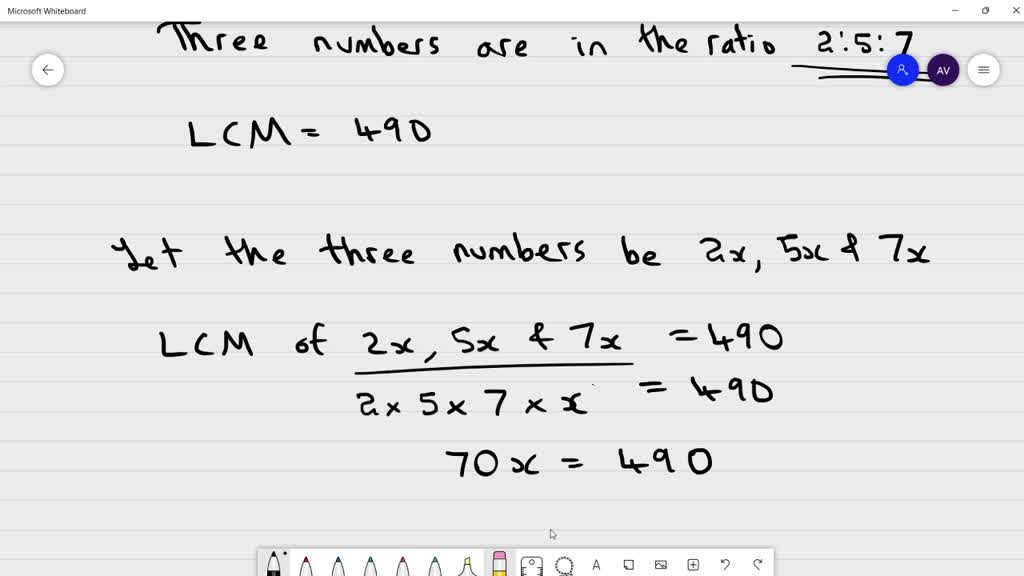 Microsoft Whiteboard
Three numbers are in the ratio 2:5:7
AV
LCM = 490
Let the three numbers be 2x, 5x & 7x
LCM of 2x, 5x & 7x = 490
2 x 5 x 7 x x = 490
70x = 490
A